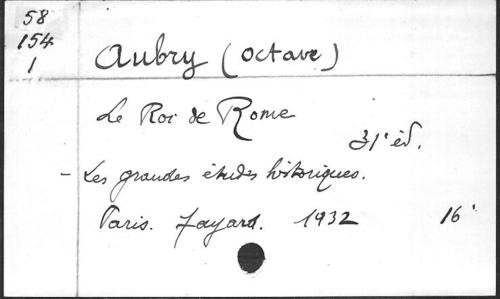 58
154
1
Aubry (Octave)
Le Roi de Rome
31e éd.
- Les grandes études historiques.
Paris. Fayard. 1932 16°